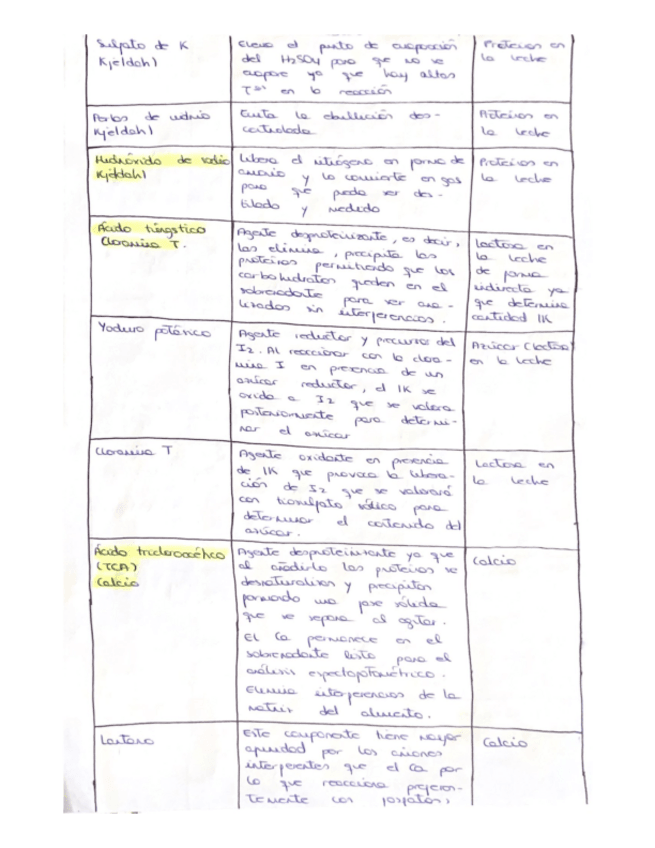 Sulfato de K
Kjeldahl)
Eleva el punto de evaporación
del H2SO4 para que no se
evapore ya que hay altas
Tªˢ en la reacción
Proteínas en
la leche
Perlas de vidrio
Kjeldahl)
Evita la ebullición des-
controlada
Proteínas en
la leche
Hidróxido de sodio
Kjeldahl)
Libera el nitrógeno en forma de
amonio y lo convierte en gas
para que pueda ser des-
tilado y medido
Proteínas en
la leche
Ácido túngstico
Cloramina T.
Agente desproteinizante, es decir,
las elimina, precipita las
proteínas permitiendo que los
carbohidratos queden en el
sobrenadante para ser ana-
lizados sin interferencias.
Lactosa en
la leche
de forma
indirecta ya
que determina
cantidad IK
Yoduro potásico
Agente reductor y precursor del
I2. Al reaccionar con la clora-
mina T en presencia de un
azúcar reductor, el IK se
oxida a I2 que se valora
posteriormente para determi-
nar el azúcar
Azúcar (lactosa)
en la leche
Cloramina T
Agente oxidante en presencia
de IK que provoca la libera-
ción de I2 que se valorará
con tiosulfato sódico para
determinar el contenido del
azúcar.
Lactosa en
la leche
Ácido tricloroacético
(TCA)
Calcio
Agente desproteinizante ya que
al añadirlo las proteínas se
desnaturalizan y precipitan
formando una fase sólida
que se separa al agitar.
El Ca permanece en el
sobrenadante listo para el
análisis espectofotométrico.
Elimina interferencias de la
matriz del alimento.
Calcio
Lantano
Este componente tiene mayor
afinidad por los aniones
interferentes que el Ca por
lo que reacciona preferen-
temente con fosfatos,
Calcio